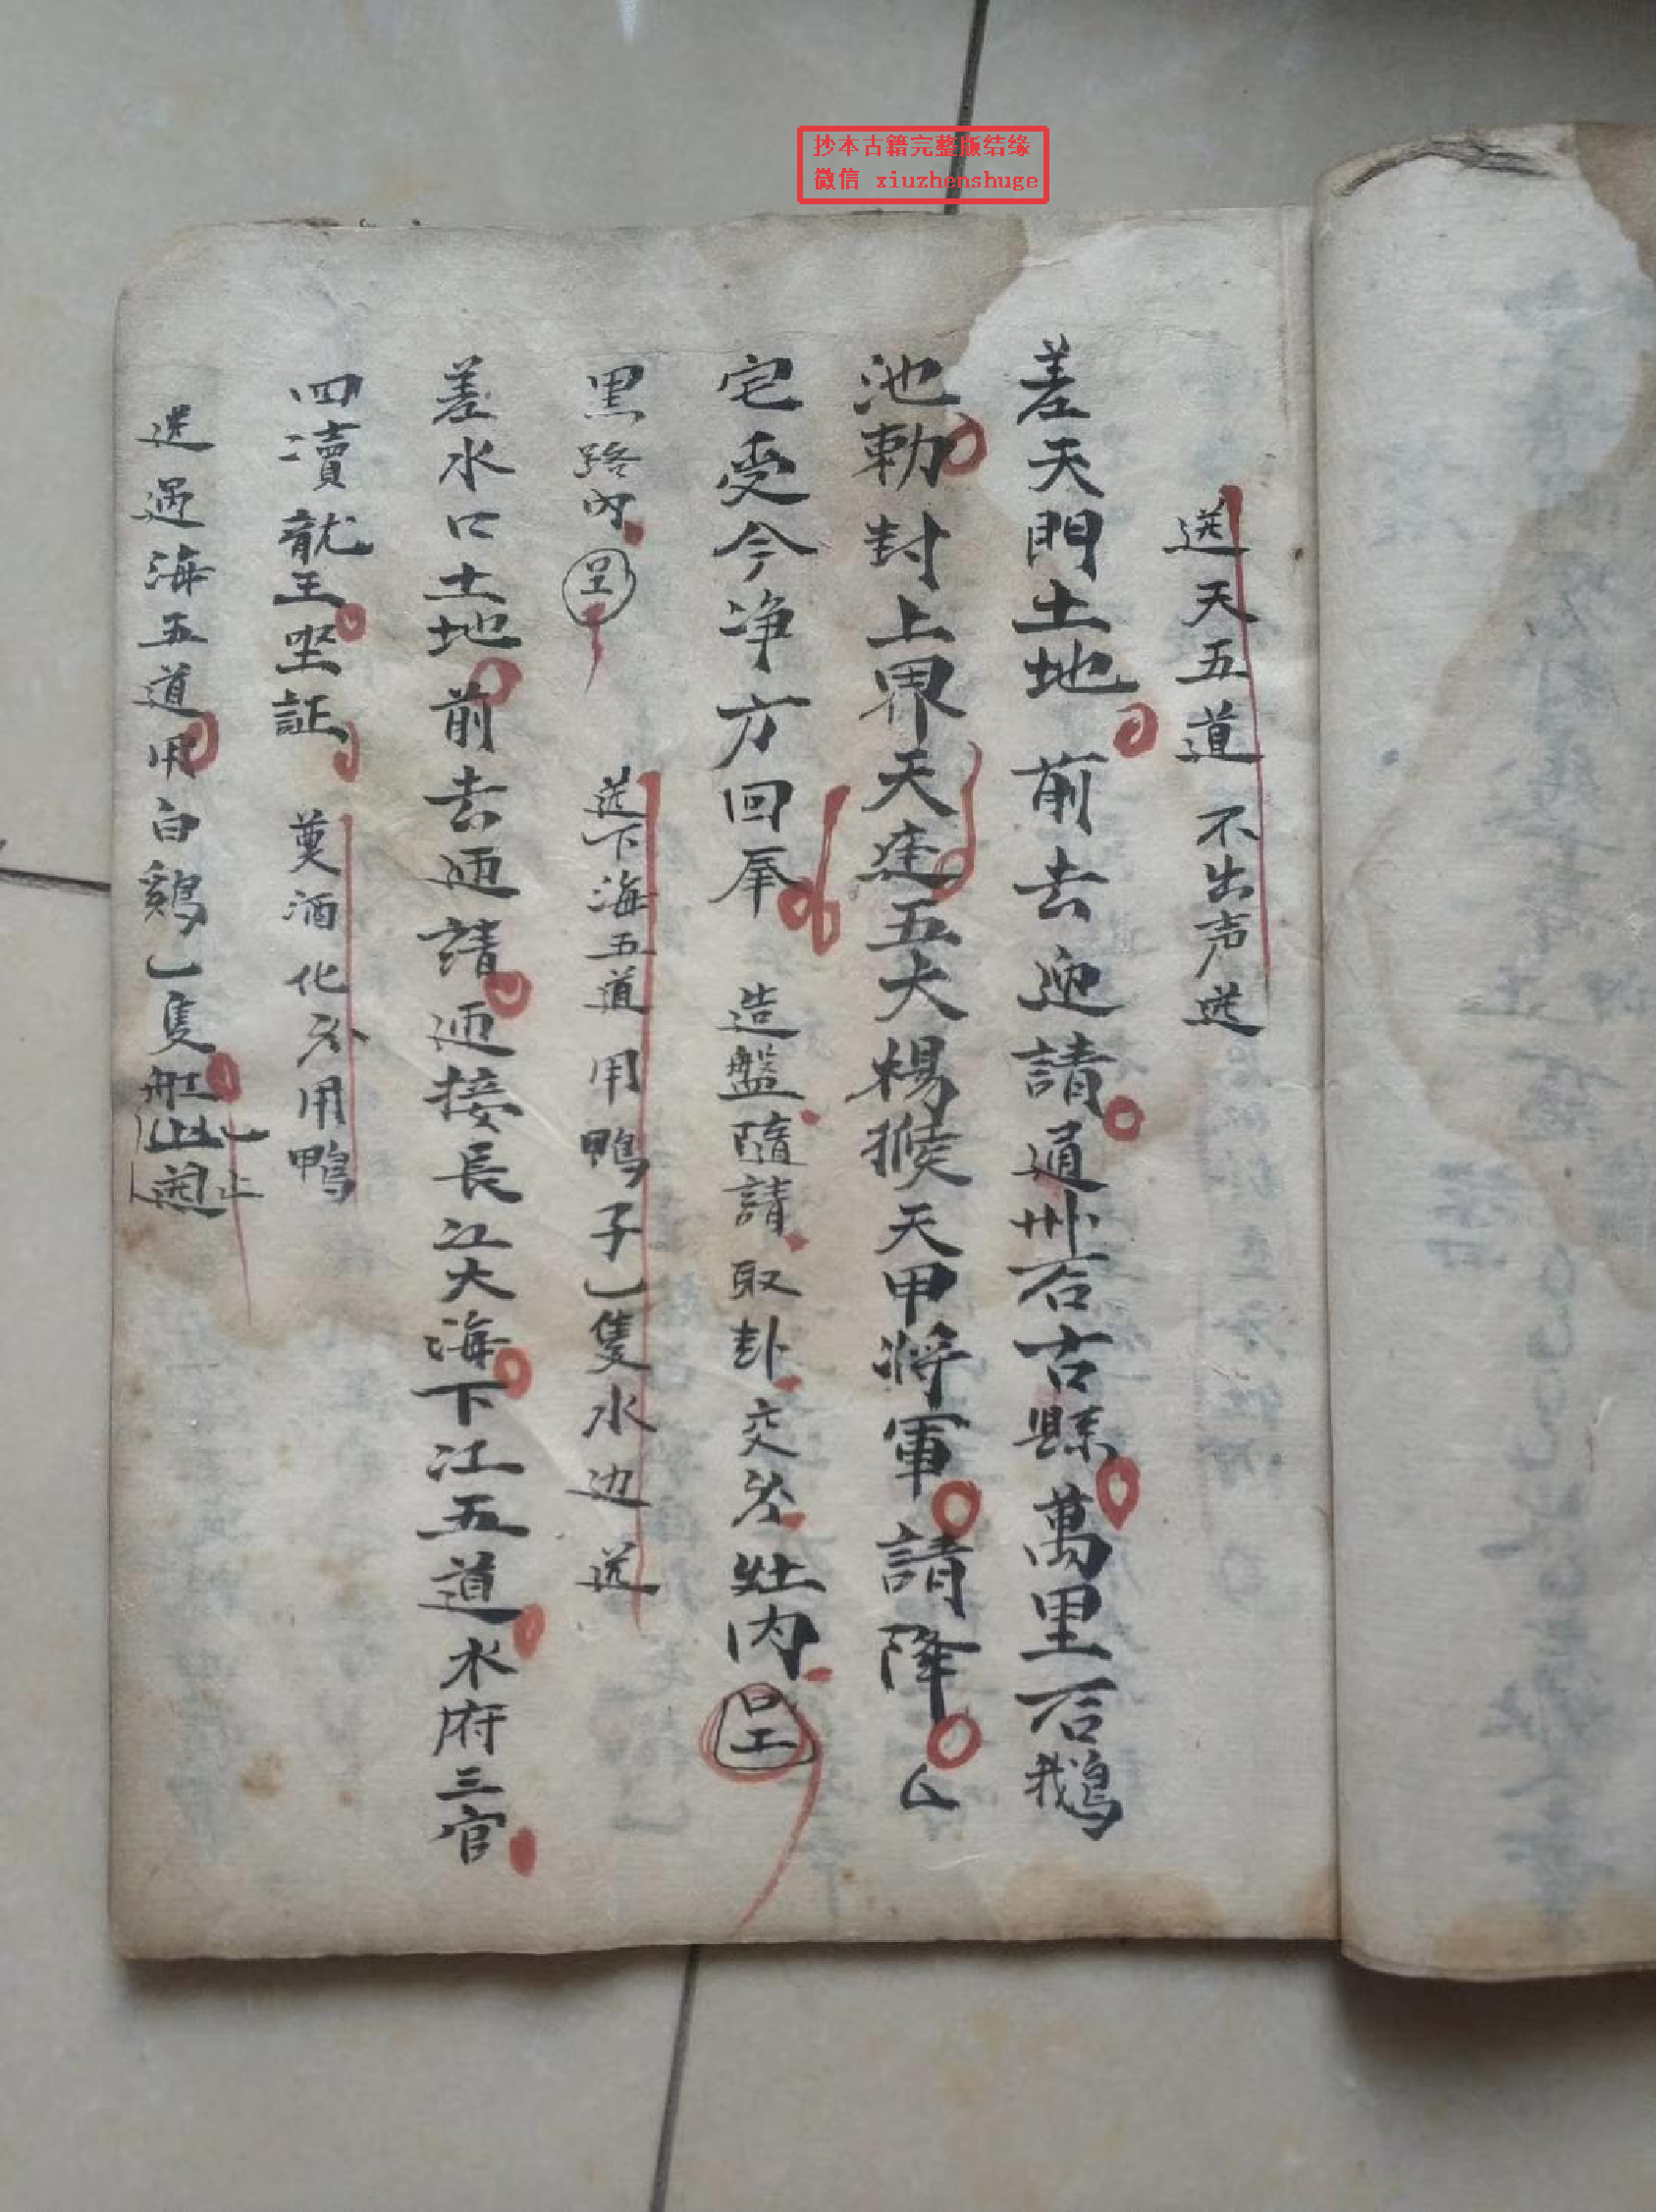 抄本古籍完整版结缘
微信 xiuzhenshuge
送天五道 不出声送
差天門土地前去迎請通州石古縣萬里石鵝
池勅封上界天五大楊猴天甲將軍請降厶
宅受今净方回 造盤隨請取卦交灶内呈
黑路內呈 送下海五道用鴨子一隻水边送
差水口土地前去迊請迊接長江大海下江五道水府三官
四瀆龍王坐証 奠酒化用鴨
送過海五道用白鷄一隻